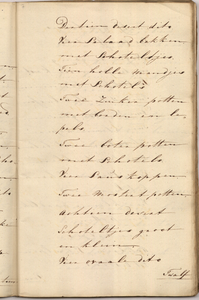 Dertien dessert dito
Vier Salaad bakken
met Schoteltjes
Twee holle mandjes
met Schotels
Twee Zuiker potten
met Laden en le
pels
Twee boter potten
met Schotels
Vier Sauskoppen
Twee Mostert potten
achtien dessert
Schoteltjes groot
en klein
Vier ovaale dito
Twalf